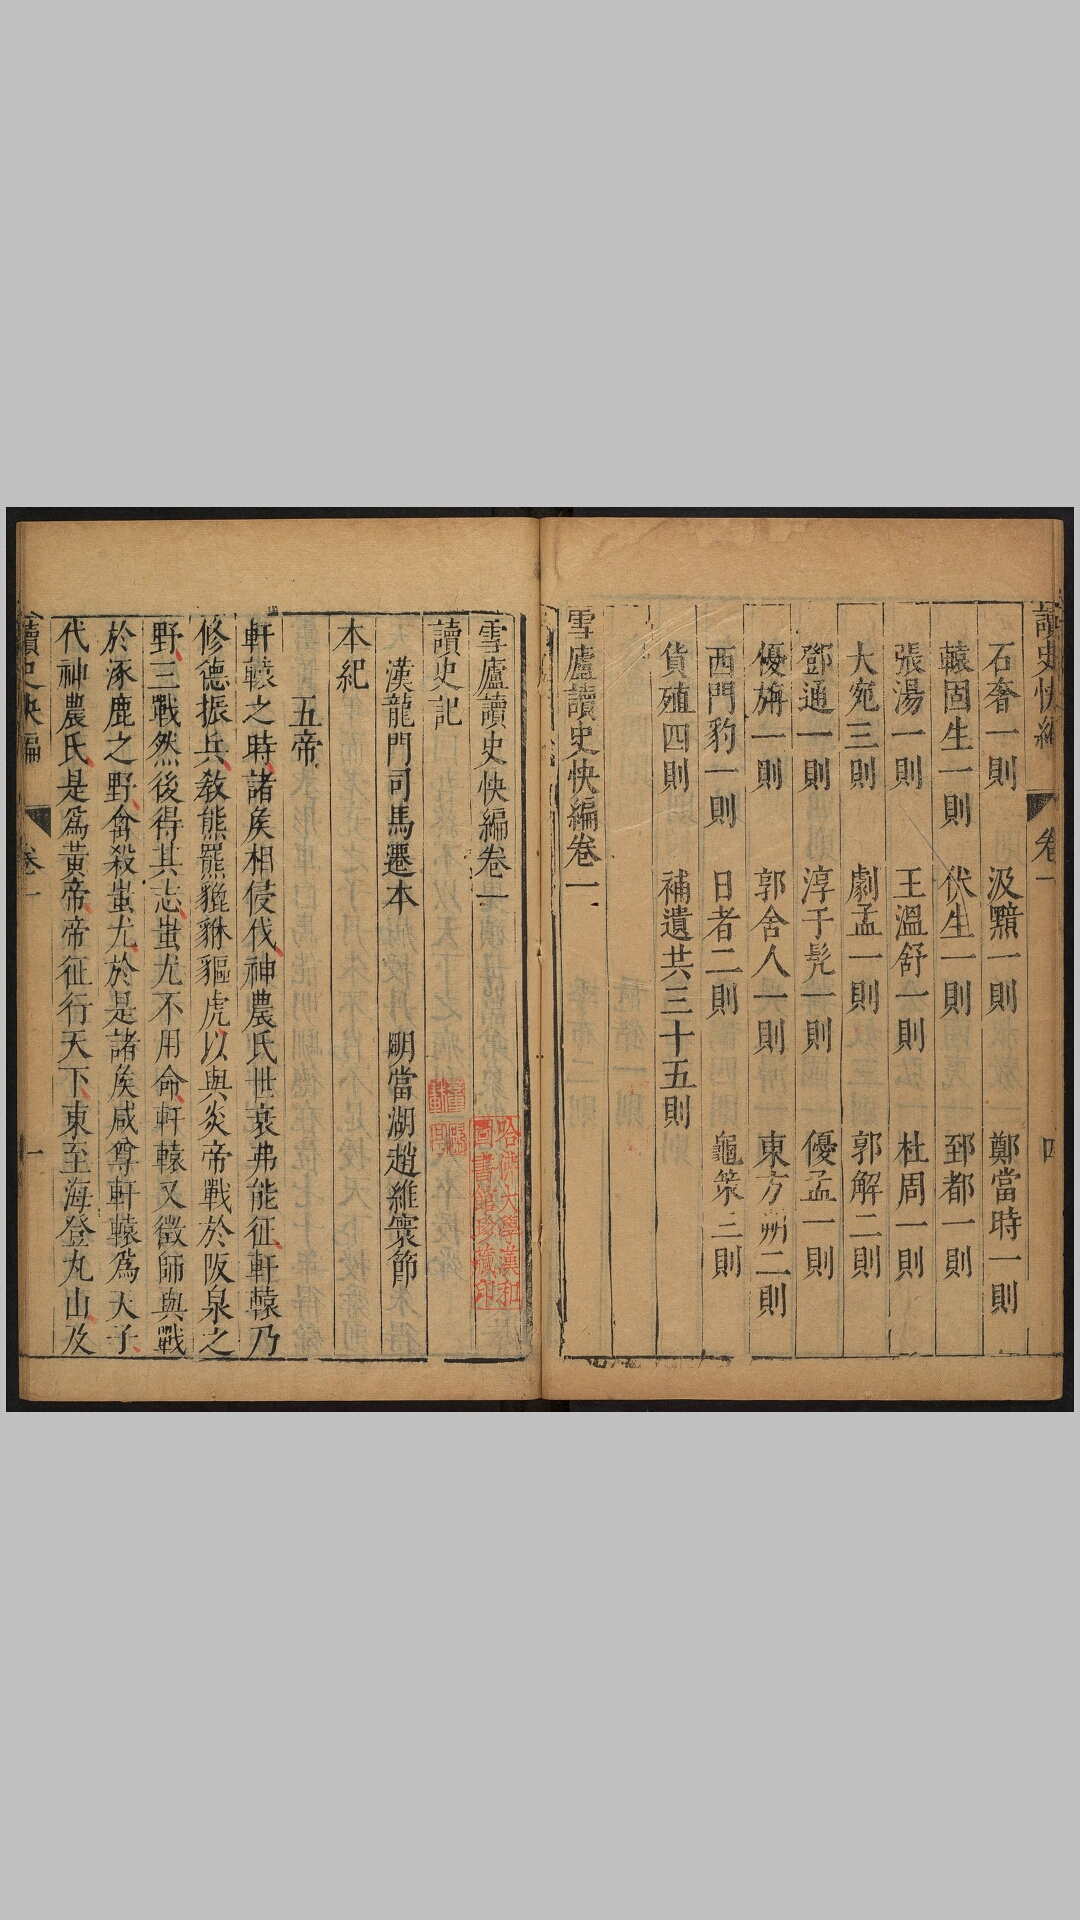 讀史快編 卷一 四
石奢一則 汲黯一則 鄭當時一則
轅固生一則 伏生一則 郅都一則
張湯一則 王溫舒一則 杜周一則
大宛三則 劇孟一則 郭解二則
鄧通一則 淳于髡一則 優孟一則
優旃一則 郭舍人一則 東方朔二則
西門豹一則 日者二則 龜筞三則
貨殖四則 補遺共三十五則
雪廬讀史快編卷一
雪廬讀史快編卷一
哈佛大學漢和圖書館珍藏印
讀史記
漢龍門司馬遷本 明當湖趙維寰節
本紀
五帝
軒轅之時諸矦相侵伐神農氏世衰弗能征軒轅乃
修德振兵教熊羆貔貅貙虎以與炎帝戰於阪泉之
野三戰然後得其志蚩尤不用命軒轅又徵師與戰
於涿鹿之野禽殺蚩尤於是諸矦咸尊軒轅爲天子
代神農氏是爲黃帝帝征行天下東至海登丸山及
讀史快編 卷一 一